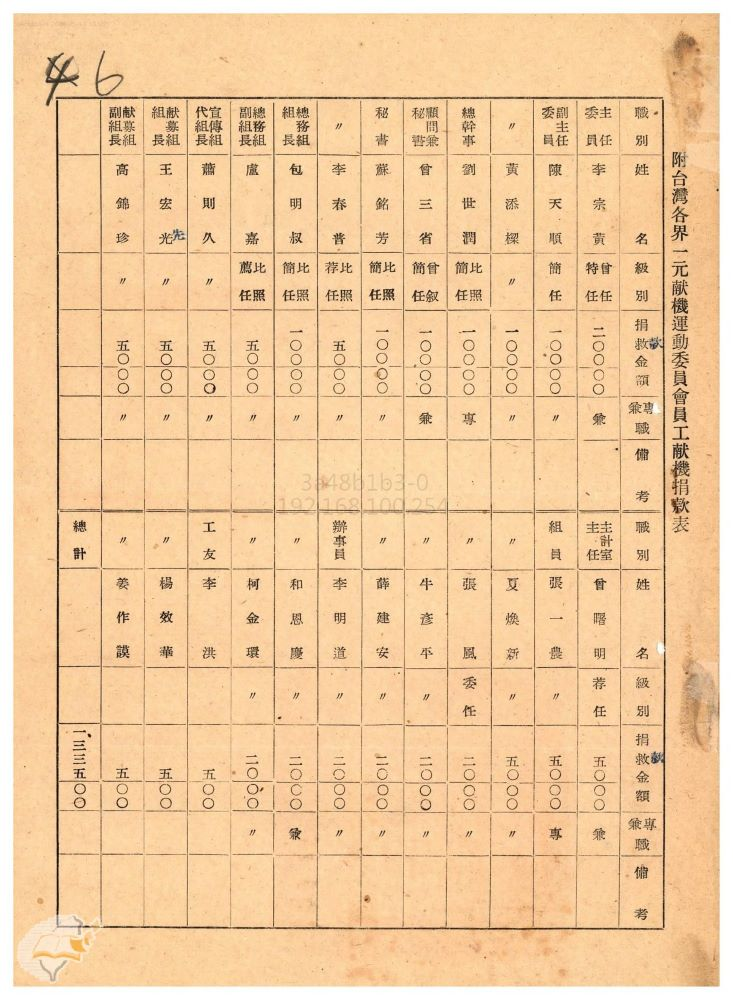 46
附台灣各界一元献機運動委員會員工献機捐款表
職別 姓名 級別 捐救金額 款 專兼職 備考
主任委員 李宗黃 曾任特任 二〇〇〇〇 兼
副主任委員 陳天順 簡任 一〇〇〇〇 〃
〃 黃添樑 〃 一〇〇〇〇 〃
總幹事 劉世潤 比照簡任 一〇〇〇〇 專
顧問兼秘書 曾三省 曾叙簡任 一〇〇〇〇 兼
秘書 蘇銘芳 比照簡任 一〇〇〇〇 〃
〃 李春普 比照荐任 五〇〇〇 〃
總務組組長 包明叔 比照簡任 一〇〇〇〇 〃
總務組副組長 盧嘉 比照薦任 五〇〇〇 〃
宣傳組代組長 蕭則久 〃 五〇〇〇 〃
献募組組長 王宏光 先 〃 五〇〇〇 〃
献募組副組長 高錦珍 〃 五〇〇〇 〃
3a48b1b3-0
192.168.100.254
職別 姓名 級別 捐救金額 款 專兼職 備考
主計室主任 曾曙明 荐任 五〇〇〇 兼
組員 張一農 〃 五〇〇〇 專
〃 夏煥新 〃 五〇〇〇 〃
〃 張風 委任 二〇〇〇 〃
〃 牛彥平 〃 二〇〇〇 〃
〃 薛建安 〃 二〇〇〇 〃
辦事員 李明道 〃 二〇〇〇 〃
〃 和恩慶 〃 二〇〇〇 兼
〃 柯金環 〃 二〇〇〇 〃
工友 李洪 五〇〇
〃 楊效華 五〇〇
〃 姜作謨 五〇〇
總計 一三三五〇〇